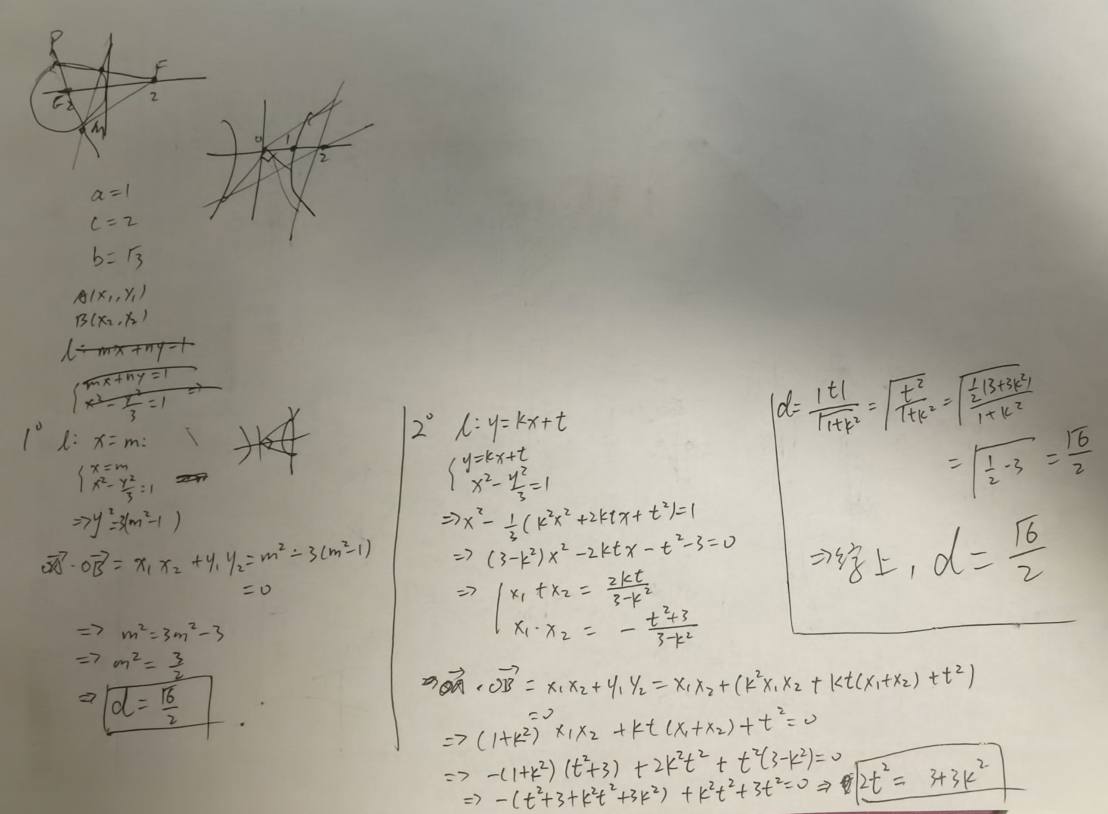 P
F
2
M
0
1
2
a=1
c=2
b=√3
A(x₁,y₁)
B(x₂,y₂)
l: mx+ny=1
{mx+ny=1
x²-y²/3=1 ⇒
1° l: x=m:
{x=m
x²-y²/3=1
⇒y²=3(m²-1)
OA·OB=x₁x₂+y₁y₂=m²-3(m²-1)
=0
⇒ m²=3m²-3
⇒ m²=3/2
⇒ d=√6/2
2° l:y=kx+t
{y=kx+t
x²-y²/3=1
⇒x²-1/3(k²x²+2ktx+t²)=1
⇒ (3-k²)x²-2ktx-t²-3=0
⇒ {x₁+x₂=2kt/3-k²
x₁·x₂=-t²+3/3-k²
⇒OA·OB=x₁x₂+y₁y₂=x₁x₂+(k²x₁x₂+kt(x₁+x₂)+t²)
=0
⇒ (1+k²)x₁x₂+kt(x₁+x₂)+t²=0
⇒ -(1+k²)(t²+3)+2k²t²+t²(3-k²)=0
⇒ -(t²+3+k²t²+3k²)+k²t²+3t²=0 ⇒ 2t²=3+3k²
d=|t|/√1+k²=√t²/1+k²=√1/2(3+3k²)/1+k²
=√1/2·3=√6/2
⇒综上,d=√6/2